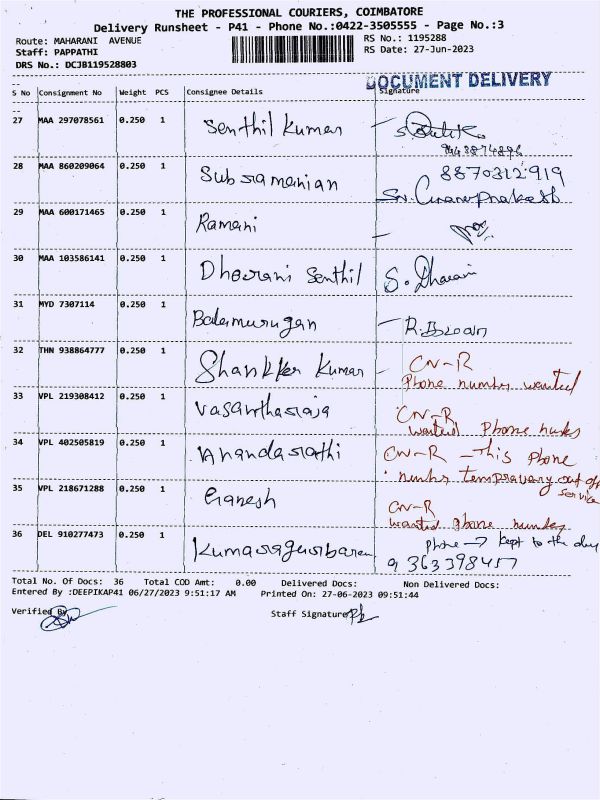 THE PROFESSIONAL COURIERS, COIMBATORE
Delivery Runsheet - P41 - Phone No.:0422-3505555 - Page No.:3
Route: MAHARANI AVENUE
RS No.: 1195288
Staff: PAPPATHI
RS Date: 27-Jun-2023
DRS No.: DCJB119528803
DOCUMENT DELIVERY
S No Consignment No Weight PCS Consignee Details Signature
27 MAA 297078561 0.250 1 Senthil Kumar
28 MAA 860209064 0.250 1 Subramanian 8870312919
29 MAA 600171465 0.250 1 Ramani
30 MAA 103586141 0.250 1 Dhoorani Senthil S. Dharani
31 MYD 7307114 0.250 1 Balamurugan
32 THN 938864777 0.250 1 Shankker Kumar CN-R
Phone number wanted
33 VPL 219308412 0.250 1 Vasantharaja CN-R
wanted Phone number
34 VPL 402505819 0.250 1 Anandarathi CN-R - This phone
number tempravary out off
service
35 VPL 218671288 0.250 1 Ganesh CN-R
wanted phone number
36 DEL 910277473 0.250 1 Kumaragurubaran phone → kept to the
9363398457
Total No. Of Docs: 36 Total COD Amt: 0.00 Delivered Docs: Non Delivered Docs:
Entered By :DEEPIKAP41 06/27/2023 9:51:17 AM Printed On: 27-06-2023 09:51:44
Verified By
Staff Signature